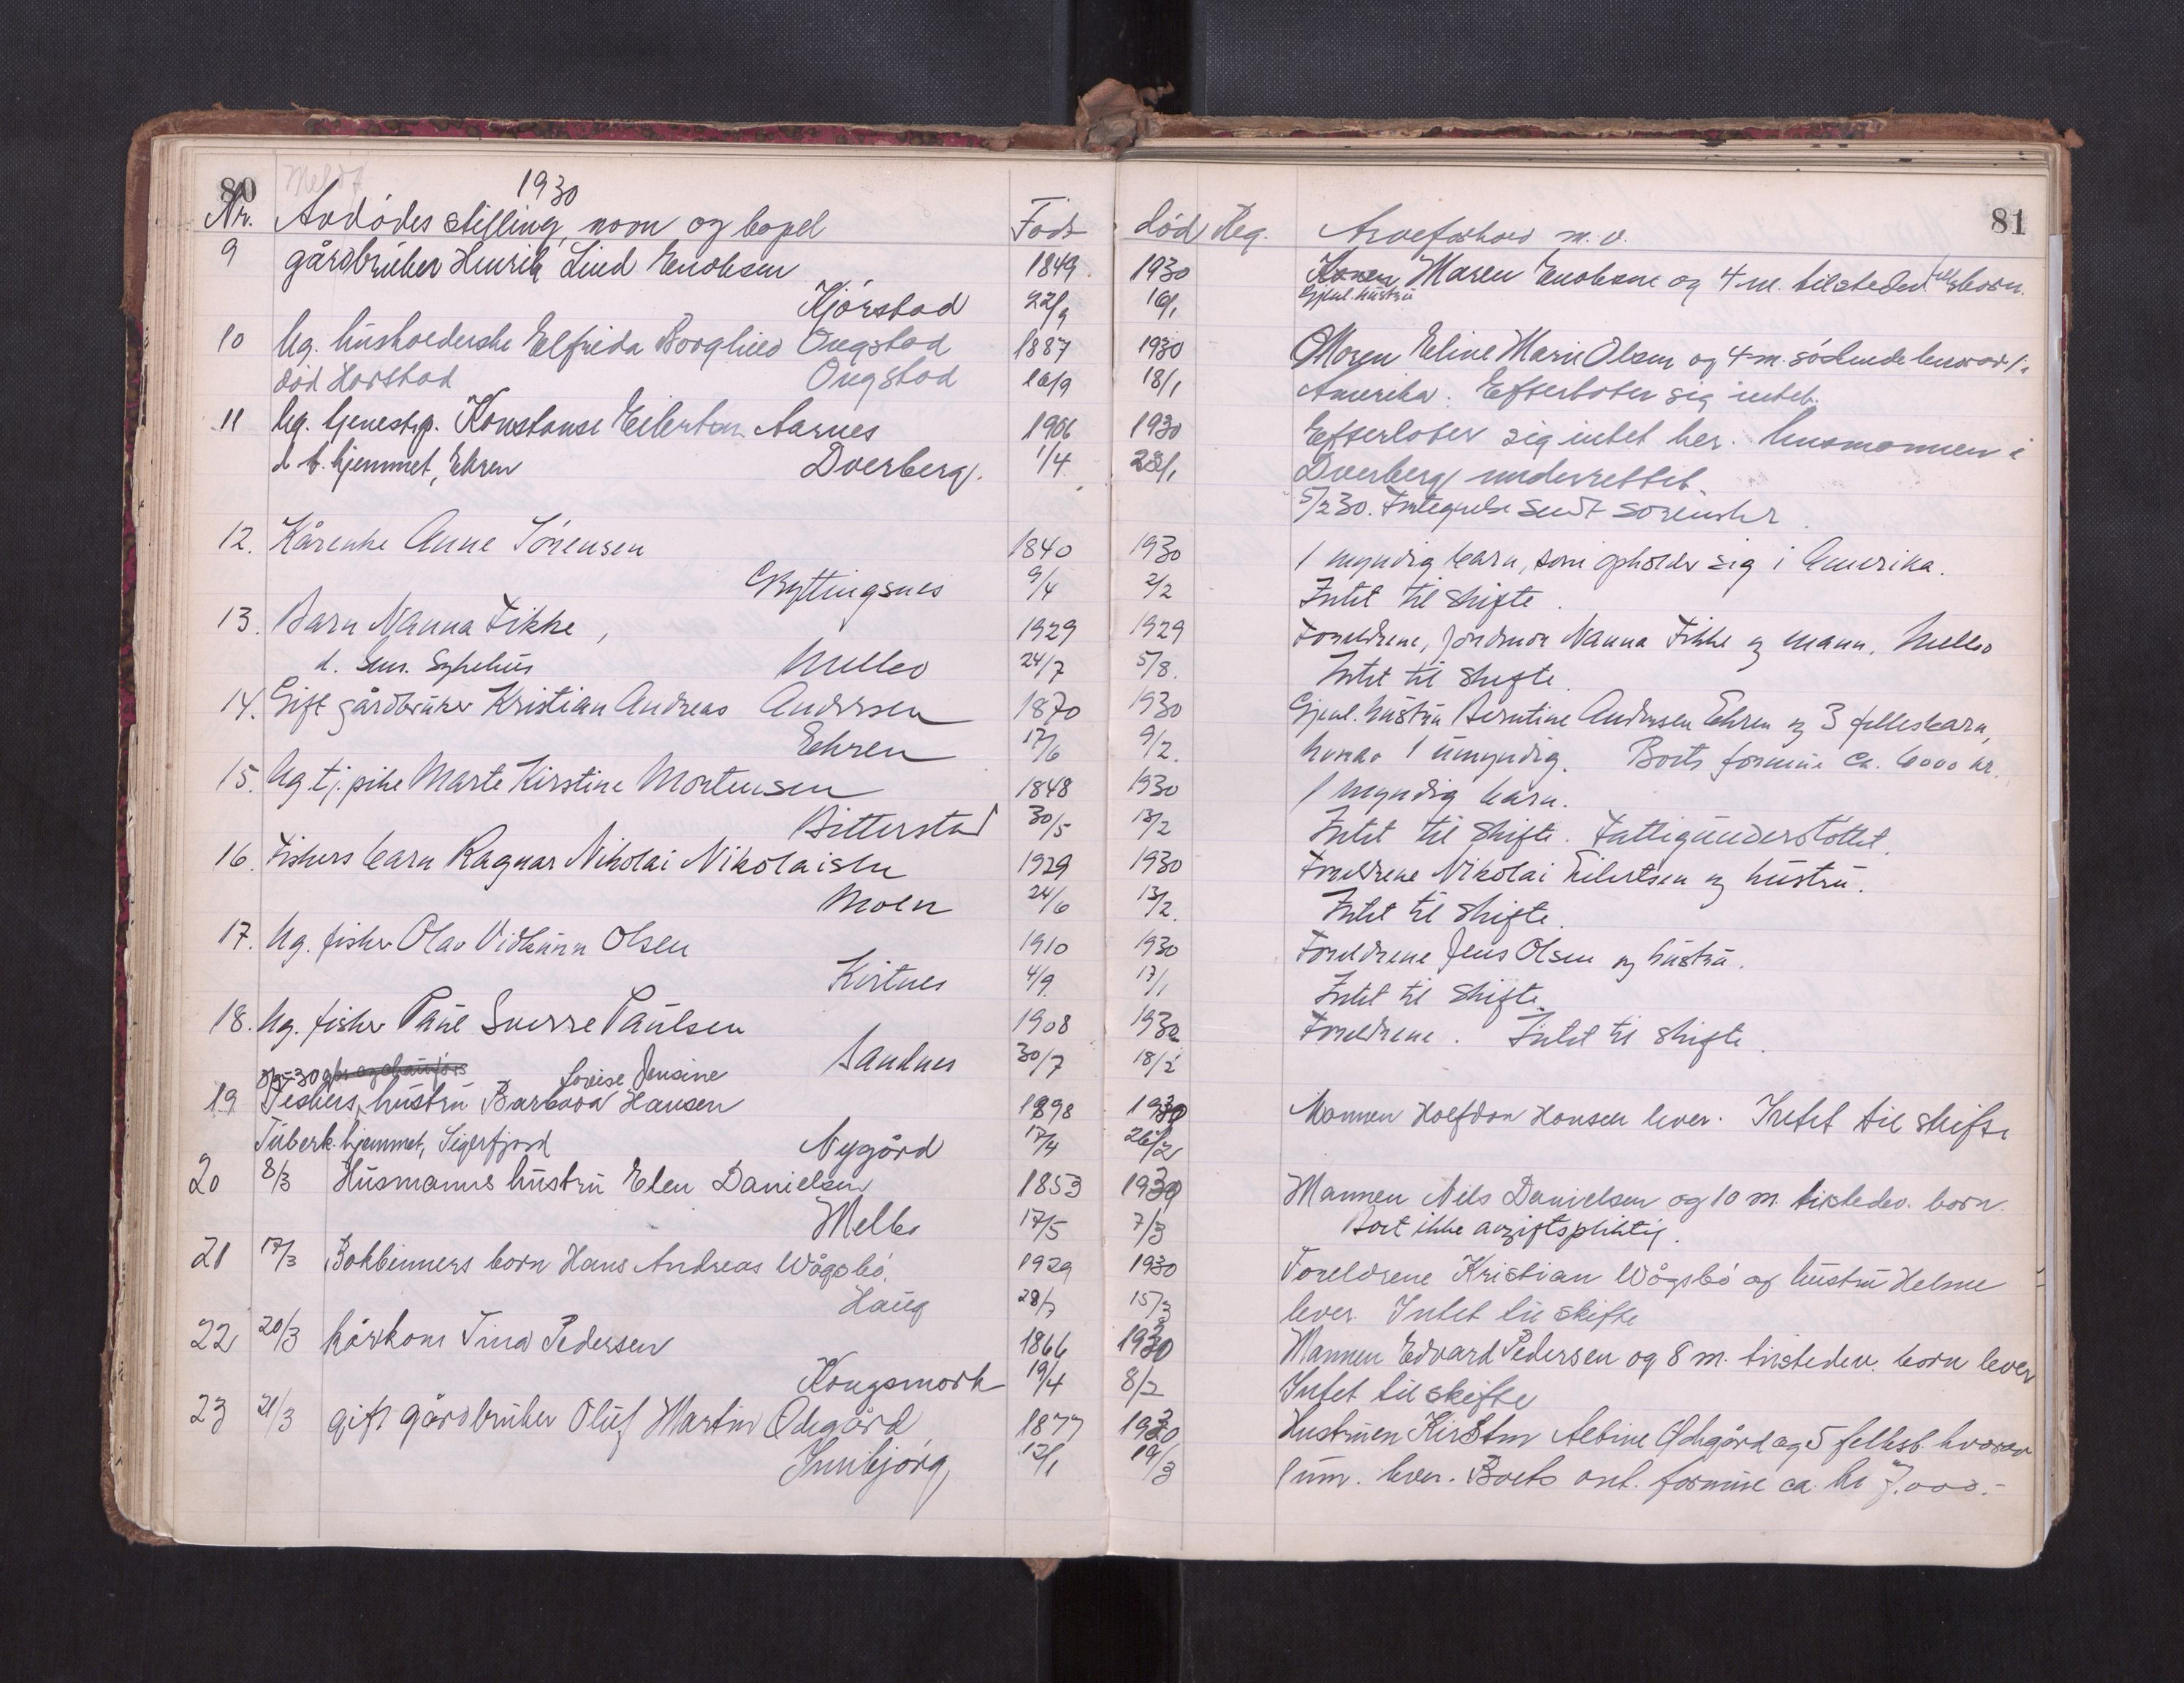 80
Meldt
1930
Nr. Avdødes stilling, navn og bopel Født død Reg. Arveforhold m. v. 81
9 gårdbruker Henrik Lind Enoksen 1849. 1930 Konen Maren Enoksen og 4 m. tilstedev. fellesbarn.
Gjenl. hustru
Kjørstad 22/9 16/1
10 Ug. husholderske Elfrida Borghild Ongstad 1887 1930 Moren Eline Marie Olsen og 4 m. søskende hvorav 1 i
død Harstad Ongstad 16/9 18/1 Amerika. Efterlater sig intet.
11 Ug. tjenestep. Konstanse Eilertsen Aarnes 1906 1930 Efterlater sig intet her. Lensmannen i
d. t. hjemmet, Ekren Dverberg. 1/4 28/1 Dverberg underrettet.
5/2 30. Frategnelse sendt sorenskr.
12. Kårenke Anne Sørensen 1840 1930 1 myndig barn, som opholder sig i Amerika.
Ryttingsnes 9/4 2/2 Intet til skifte.
13. Barn Nanna Fikke, 1929 1929 Foreldrene, jordmor Nanna Fikke og mann, Melbo
d. Sykehus Melbo 24/7 5/8. Intet til skifte.
14. Gift gårdbruker Kristian Andreas Andersen 1870 1930 Gjenl. hustru Berntine Andersen Ekren og 3 fellesbarn,
Ekren 17/6 9/2. hvorav 1 umyndig. Boets formue ca. 6000 kr.
15. Ug tj. pike Marte Kirstine Mortensen 1848 1930 1 myndig barn.
Bitterstad 30/5 13/2 Intet til skifte. Fattigunderstøttet.
16. Fiskers barn Ragnar Nikolai Nikolaisen 1929 1930 Foreldrene Nikolai Eilertsen og hustru.
Moen 24/6 13/2. Intet til skifte.
17. Ug. fisker Olav Vidkunn Olsen 1910 1930 Foreldrene Jens Olsen og hustru.
Kirtnes 4/9. 17/1 Intet til skifte.
18. Ug. fisker Paul Sverre Paulsen 1908 1930 Foreldrene. Intet til skifte.
Sandnes 30/7 18/2
3/3-30 Lovise Jensine
19 Fiskers hustru Barbara Hansen 1898 1930 Mannen Halfdan Hansen lever. Intet til skifte
Tuberk. hjemmet, Sigerfjord Nygård 17/4 26/2
20 8/3 Husmanns hustru Elen Danielsen 1853 1930 Mannen Nils Danielsen og 10 m. tilstedev. barn.
Melbo 17/5 7/3 Boet ikke avgiftspliktig.
21 17/3 Bokbinners barn Hans Andreas Wågsbø. 1929 1930 Foreldrene Kristian Wågsbø og hustru Helene
Haug 28/7 15/3 lever. Intet til skifte
22 20/3 kårkone Tina Pedersen 1866 1930 Mannen Edvard Pedersen og 8 m. tilstedev. barn lever
Kongsmark 19/4 8/2 Intet til skifte
23 21/3 gift gårdbruker Oluf Martin Ødegård 1877 1930 Hustruen Kirstine Albine Ødegård og 5 fellesb. hvorav
Innbjørg 12/1 19/3 1 um. lever. Boets ant. formue ca. kr 7.000.-